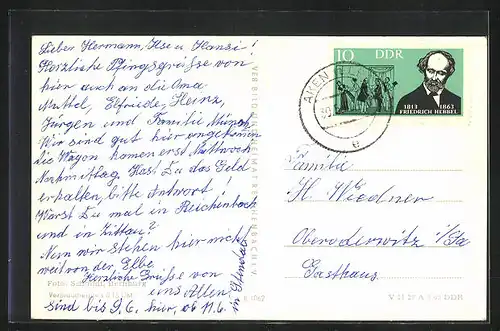 Lieber Hermann, Ilse u. Hansi!
Herzliche Pfingsgrüsse von
hier auch an die Oma
Muttel, Elfriede, Heinz,
Jürgen und Familie
Wir sind gut hier angekommen
Die Wagen komen erst Mittwoch
Nachmittag. Hast Du das Geld
erhalten, bitte Antwort!
Warst Du mal in Reichenbach
und in Zittau?
Nun wir stehen hier nicht
weit von der Elbe
Herzliche Grüsse von
uns Allen
Sind bis 9.6. hier, ab 11.6.
in Stendal
Foto:
VEB BILD UND HEIMAT REICHENBACH I. V.
10 DDR
1813 1863
FRIEDRICH HEBBEL
AKEN
e
Familie
H. Wiedner
Oberoderwitz i/Sa
Gasthaus
DDR